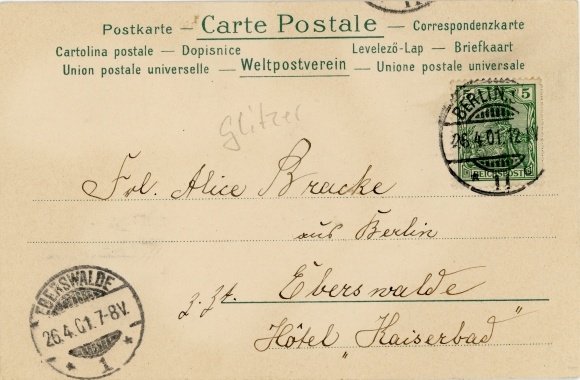 Postkarte — Carte Postale — Correspondenzkarte
Cartolina postale — Dopisnice Levelező-Lap — Briefkaart
Union postale universelle — Weltpostverein — Unione postale universale
5 5
BERLIN
26.4.01.12-1V.
* 11
REICHSPOST
Glitzer
Frl. Alice Bracke
aus Berlin
z. Zt. Eberswalde
Hôtel „Kaiserbad"
EBERSWALDE
26.4.01.7-8V.
* 1 *